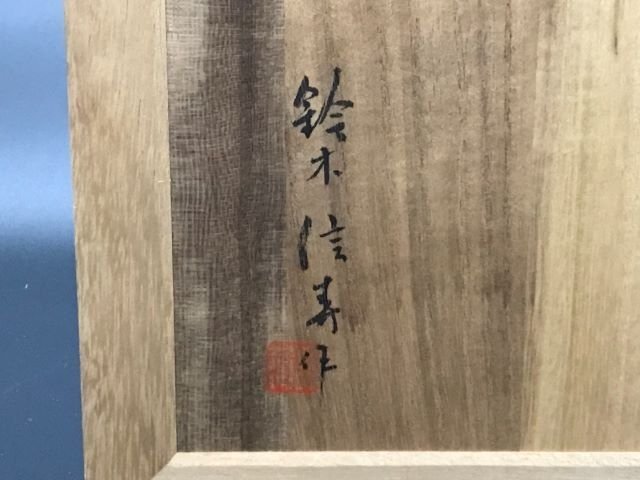 鈴木信寿作